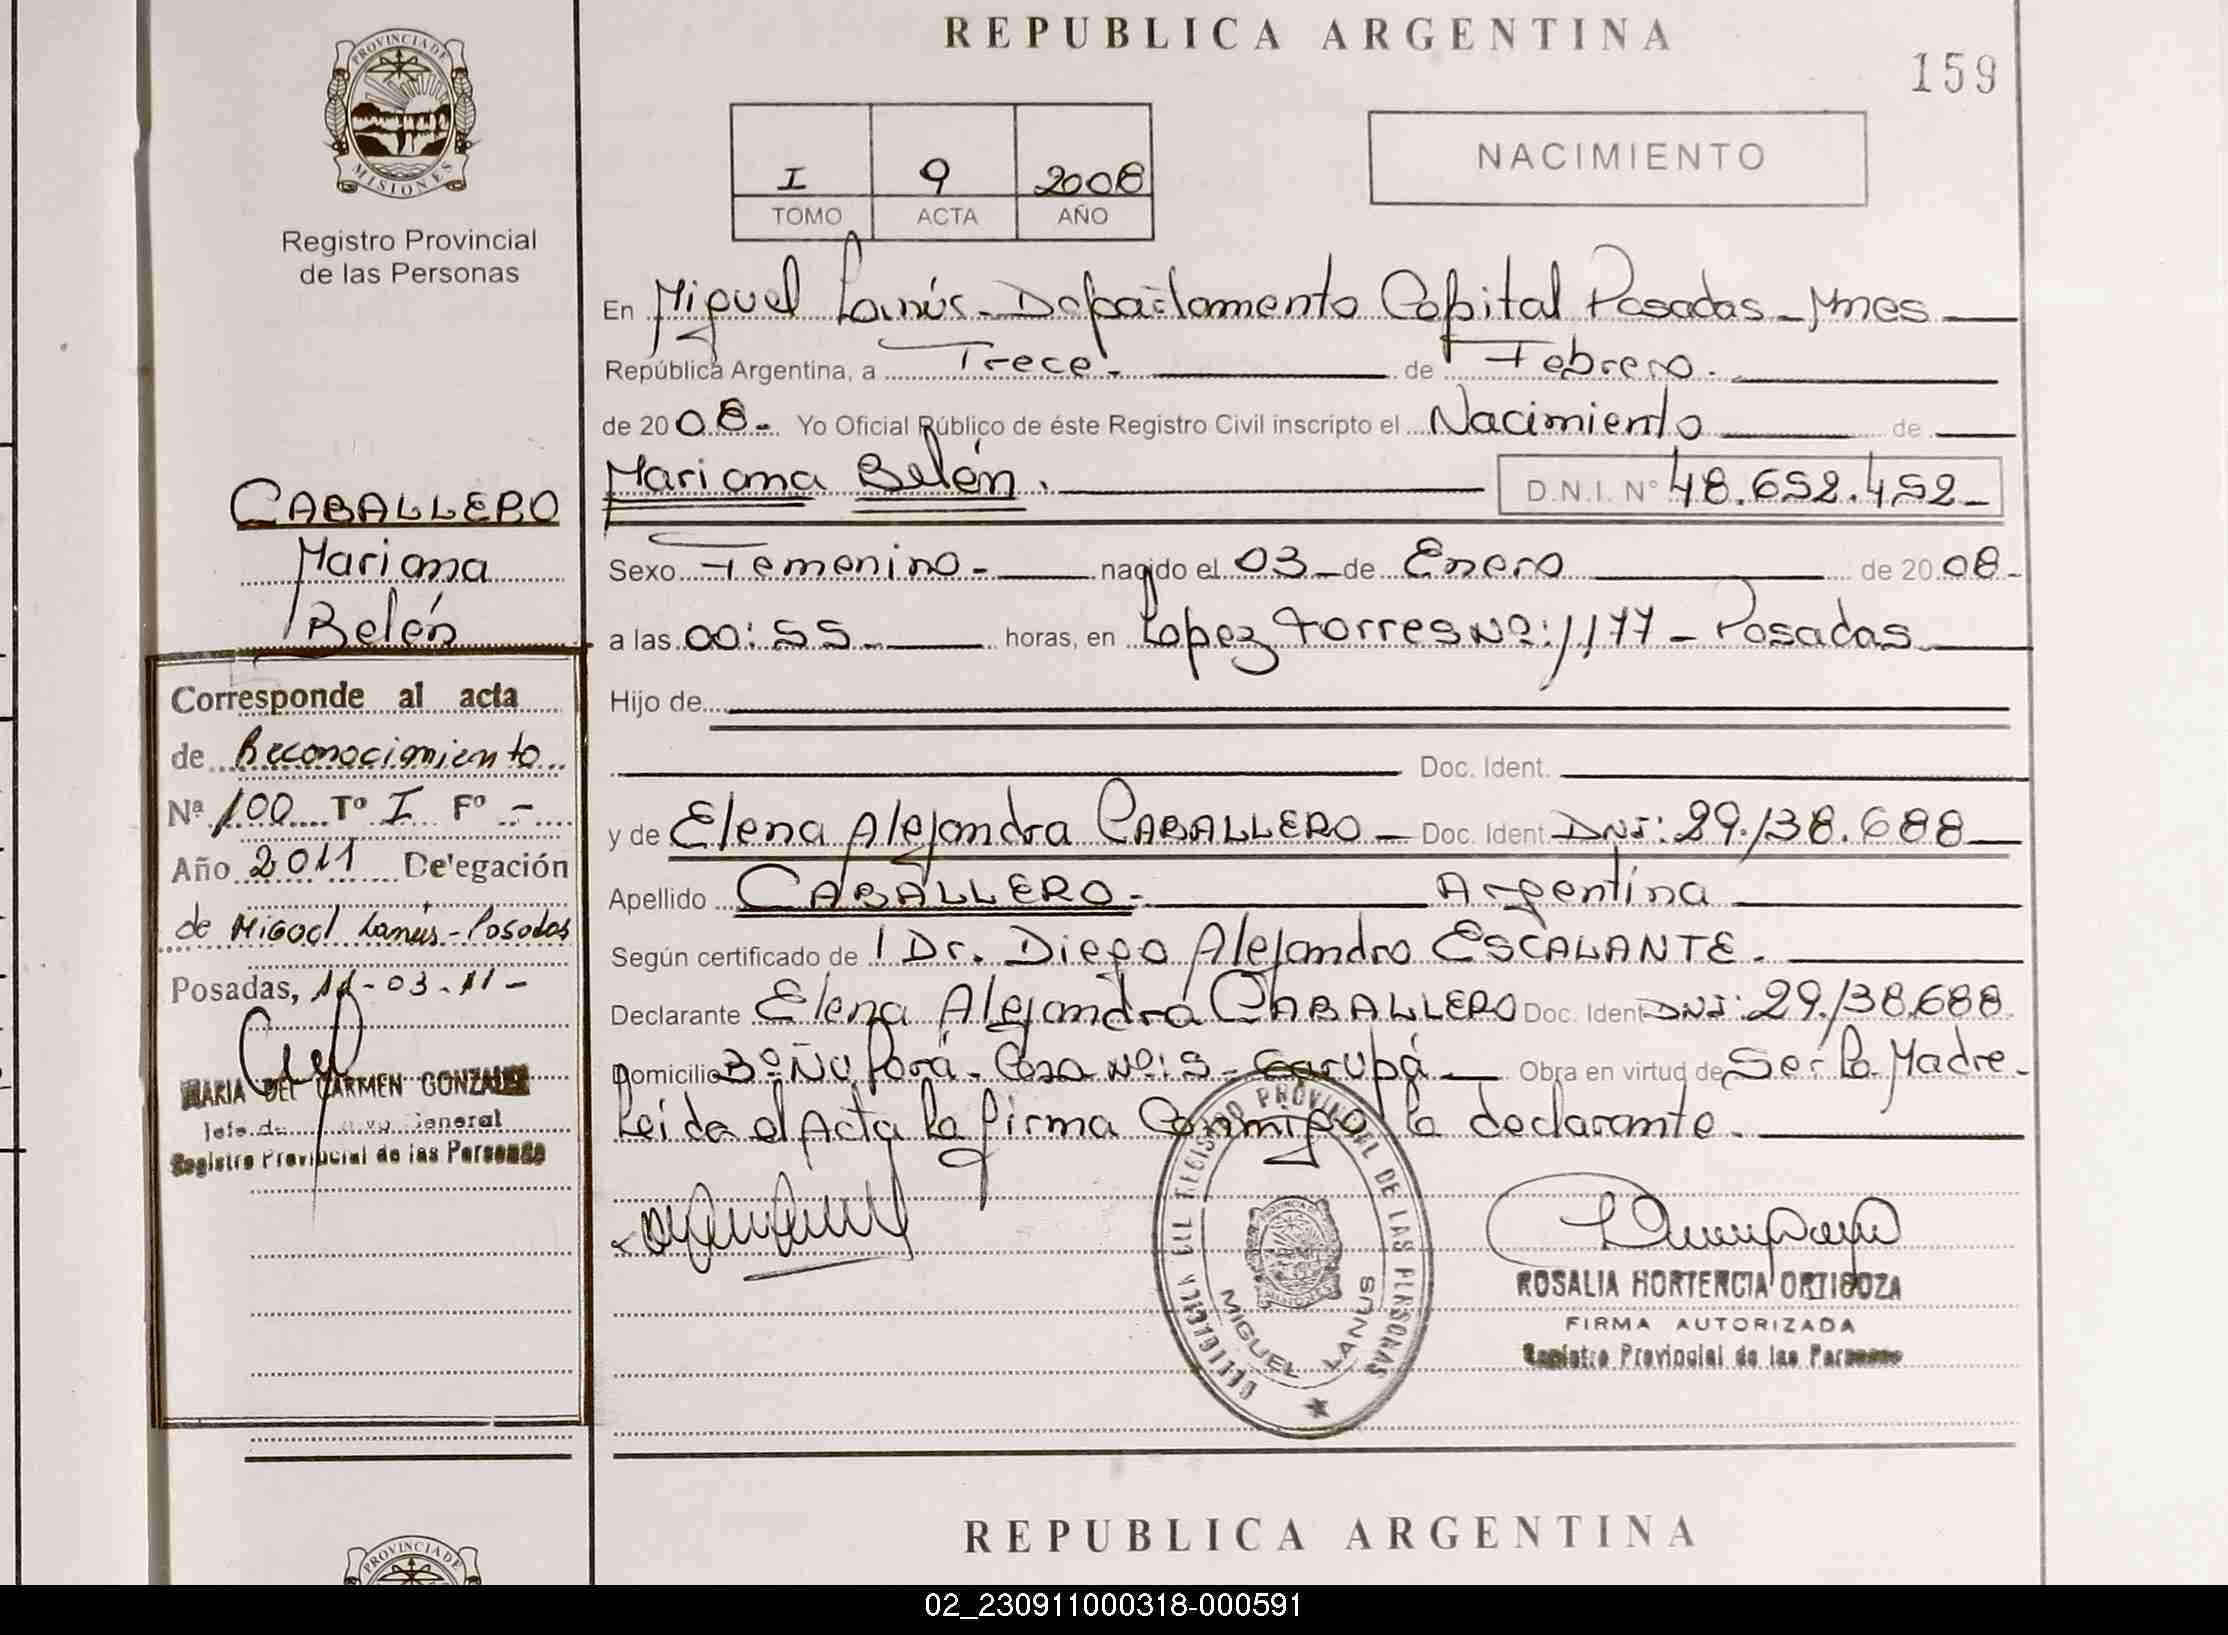 REPUBLICA ARGENTINA
159
PROVINCIA DE
MISIONES
Registro Provincial
de las Personas
I 9 2008
TOMO ACTA AÑO
NACIMIENTO
En Miguel Lanús - Departamento Capital Posadas - Mnes
República Argentina, a Trece.- de Febrero.
de 2008.- Yo Oficial Público de éste Registro Civil inscripto el Nacimiento de
Mariana Belén. D.N.I. N° 48.652.452-
Sexo Femenino- nacido el 03-de Enero de 2008-
a las 00:55.- horas, en Lopez Torres Nº: 1177 - Posadas
Hijo de
Doc. Ident.
y de Elena Alejandra CABALLERO - Doc. Ident. DNI: 29.138.688
Apellido CABALLERO.- Argentina
Según certificado de l Dr. Diego Alejandro ESCALANTE.
Declarante Elena Alejandra CABALLERO Doc. Ident DNI: 29.138.688
Domicilio Bº Ñu Porá - Casa Nº: 9 - Garupá Obra en virtud de Ser la Madre.
Leida el Acta la firma Conmigo la declarante.
CABALLERO
Mariana
Belén
Corresponde al acta
de Reconocimiento
Nª 100 Tº I Fº -
Año 2011 Delegación
de Miguel Lanús - Posadas
Posadas, 11-03-11-
MARIA DEL CARMEN GONZALEZ
Jefe de General
Registro Provincial de las Personas
REGISTRO PROVINCIAL DE LAS PERSONAS
MIGUEL LANUS
ROSALIA HORTENCIA ORTIGOZA
FIRMA AUTORIZADA
Registro Provincial de las Personas
REPUBLICA ARGENTINA
PROVINCIA DE
02_230911000318-000591